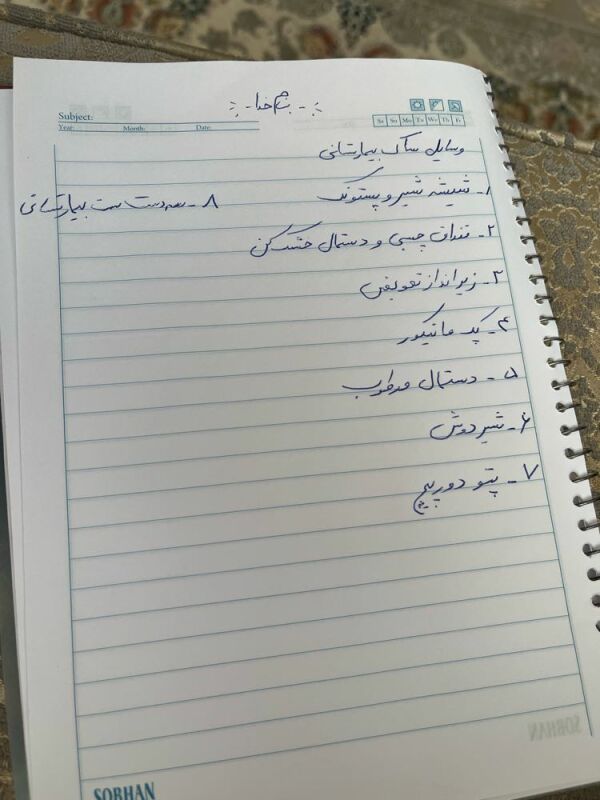 بنام خدا
Subject:
Year: Month: Date:
Sa Su Mo Tu We Th Fr
وسایل ساک بیمارستانی
۱- شیشه شیر و پستونک
۲- تندان چسبی و دستمال خشک کن
۳- زیرانداز تعویض
۴- پک مانیکور
۵- دستمال مرطوب
۶- شیردوش
۷- پتو دورپیچ
۸- سه دست ست بیمارستانی
SOBHAN